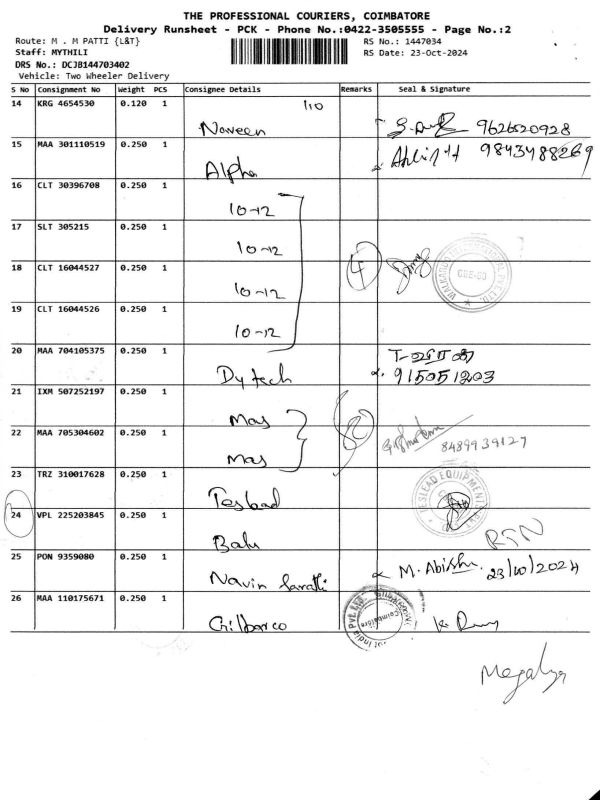 THE PROFESSIONAL COURIERS, COIMBATORE
Delivery Runsheet - PCK - Phone No.:0422-3505555 - Page No.:2
Route: M . M PATTI {L&T}
RS No.: 1447034
Staff: MYTHILI
RS Date: 23-Oct-2024
DRS No.: DCJB144703402
Vehicle: Two Wheeler Delivery
S No Consignment No Weight PCS Consignee Details Remarks Seal & Signature
14 KRG 4654530 0.120 1 1/10
Naveen 9626520928
15 MAA 301110519 0.250 1 9843488269
Alpha
16 CLT 30396708 0.250 1
10-12
17 SLT 305215 0.250 1
10-12
18 CLT 16044527 0.250 1 4
10-12
19 CLT 16044526 0.250 1
10-12
20 MAA 704105375 0.250 1
Dytech 915051203
21 IXM 507252197 0.250 1
Mas
22 MAA 705304602 0.250 1 8489939127
Mas
23 TRZ 310017628 0.250 1
Teslead TESLEAD EQUIPMENTS
24 VPL 225203845 0.250 1
Balu RTN
25 PON 9359080 0.250 1
Navin Sarathi M. Abishu. 23/10/2024
26 MAA 110175671 0.250 1
Gilbarco Coimbatore